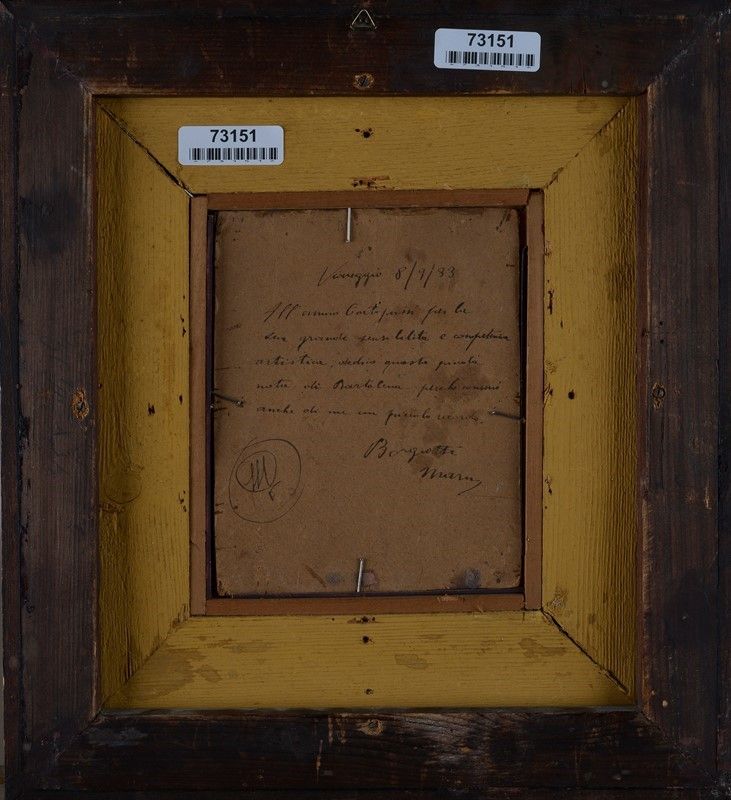 73151
73151
Viareggio 8/9/83
All'amico per la
sua grande sensibilità e competenza
artistica, dedico questa piccola
nota di Bartolena perchè conservi
anche di me un piccolo ricordo.
Borgiotti
Mario